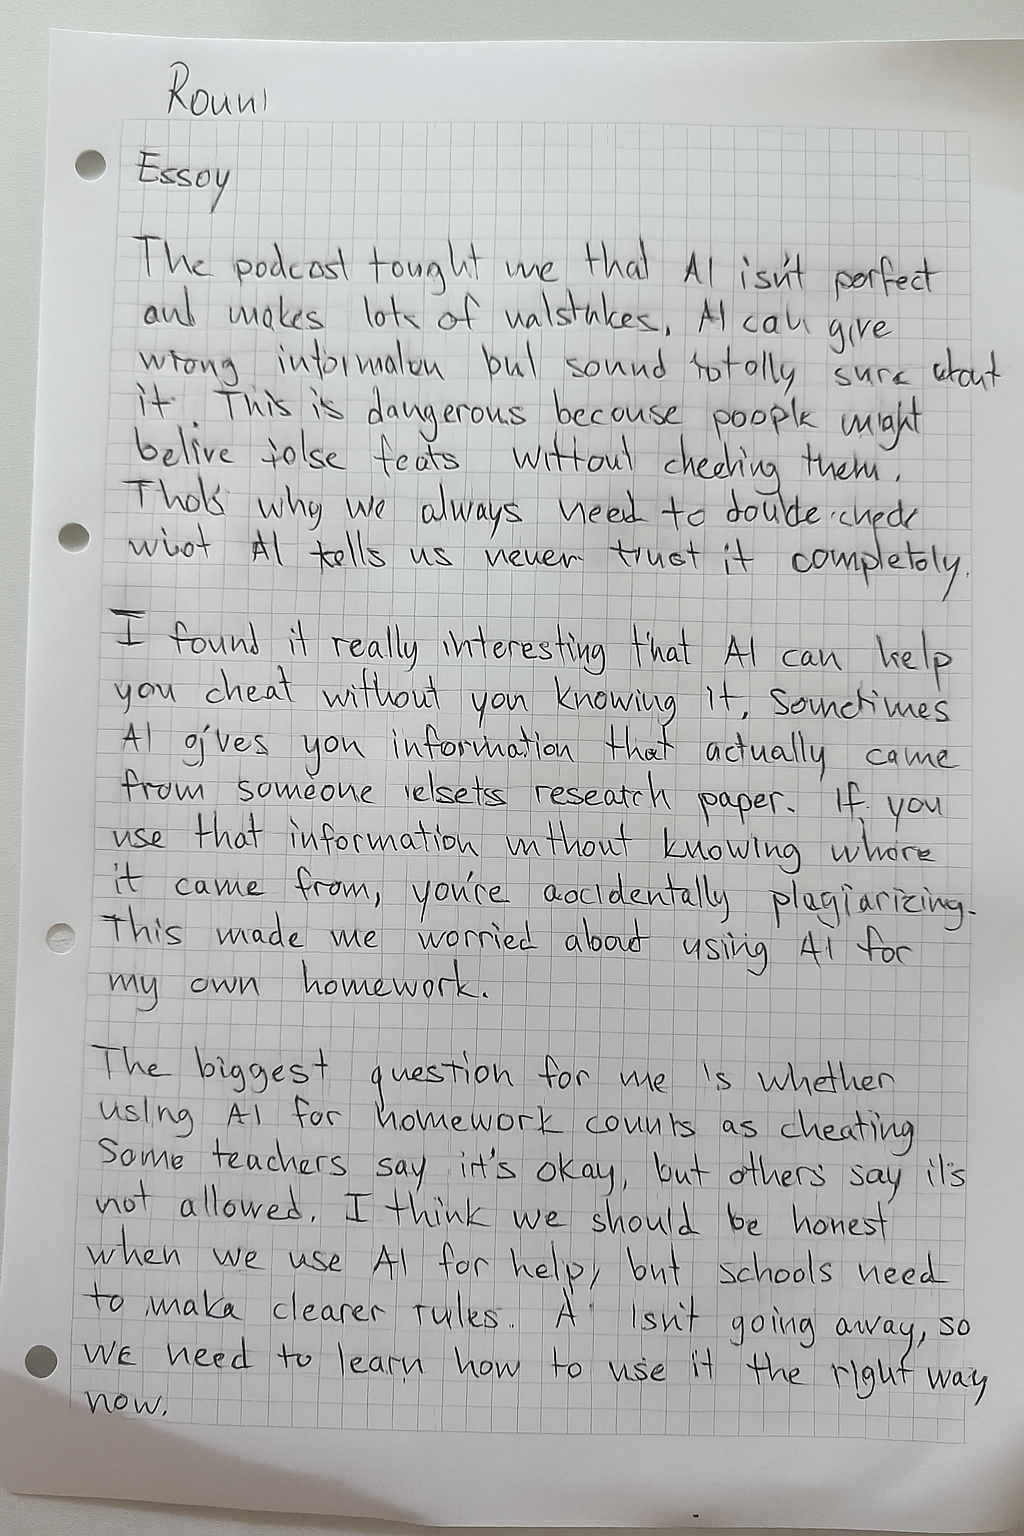 Rouni
Essay
The podcast tought me that AI isn't perfect
and makes lots of mistakes, AI can give
wrong informaton but sound totally sure about
it. This is dangerous because poople might
belive false facts without checking them.
That's why we always need to double check
what AI tells us never trust it completoly.
I found it really interesting that AI can help
you cheat without you knowing it, Sometimes
AI gives you information that actually came
from someone elsets reseatch paper. If you
use that information without knowing whore
it came from, you're accidentally plagiarizing.
This made me worried about using AI for
my own homework.
The biggest question for me is whether
using AI for homework counts as cheating
Some teachers say it's okay, but others say it's
not allowed. I think we should be honest
when we use AI for help, but schools need
to maka clearer rules. A isn't going away, so
we need to learn how to use it the right way
now.